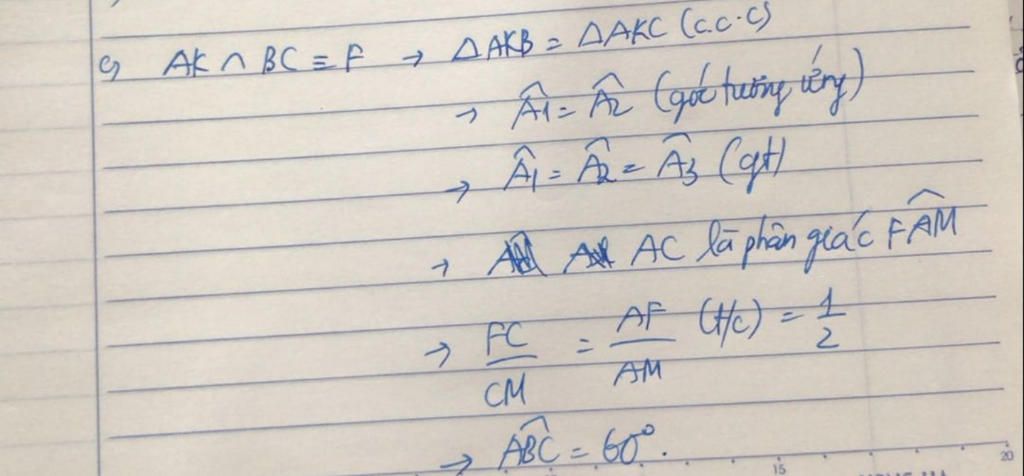 c, AK ∩ BC ≡ F → ΔAKB = ΔAKC (c.c.c)
→ Â1 = Â2 (góc tương ứng)
→ Â1 = Â2 = Â3 (gt)
→ AC là phân giác FÂM
→ FC/CM = AF/AM (t/c) = 1/2
→ ABC̑ = 60°.
15 20